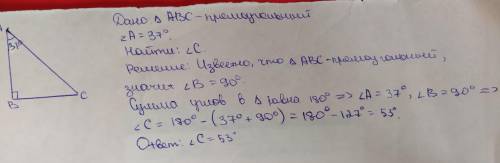 A
37°
B
C
Дано ∆ ABC - прямоугольний
∠A = 37°.
Найти: ∠C.
Решение: Известно, что ∆ ABC - прямоугольний,
значит ∠B = 90°.
Сумма углов в ∆ равна 180° => ∠A = 37°, ∠B = 90° =>
∠C = 180° - (37° + 90°) = 180° - 127° = 53°.
Ответ: ∠C = 53°